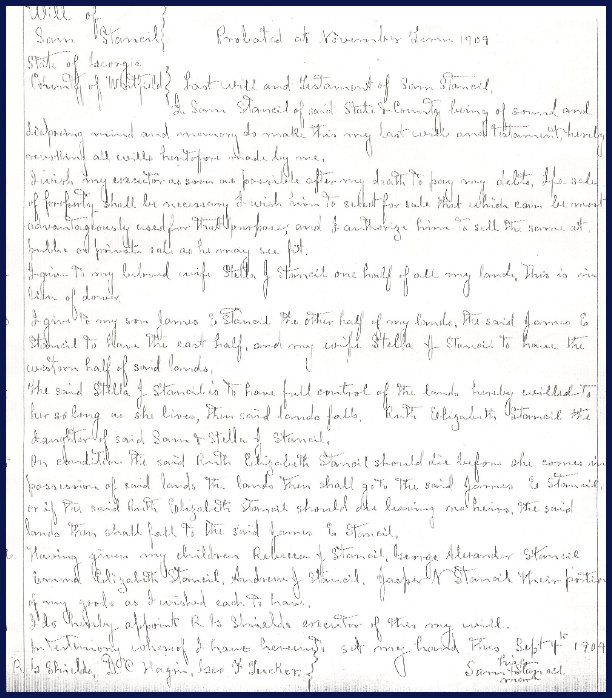 Will of
Sam Stancil } Probated at November Term 1909
State of Georgia
County of Whitfield } Last will and Testament of Sam Stancil.
I Sam Stancil of said State & County being of sound and
disposing mind and memory do make this my last will and testament, hereby
revoking all wills heretofore made by me.
I wish my executor as soon as possible after my death to pay my debts, If a sale
of property shall be necessary I wish him to select for sale that which can be most
advantageously used for that purpose, and I authorize him to sell the same at
public or private sale as he may see fit.
I give to my beloved wife Stella J Stancil one half of all my lands, This is in
lieu of dower.
I give to my son James E Stancil the other half of my lands, the said James E
Stancil to have the east half, and my wife Stella J Stancil to have the
western half of said lands.
The said Stella J. Stancil is to have full control of the lands hereby willed to
her so long as she lives, then said lands falls. Ruth Elizabeth Stancil the
daughter of said Sam & Stella J Stancil.
On condition the said Ruth Elizabeth Stancil should die before she comes in
possession of said lands the lands then shall go to the said James E Stancil
or if the said Ruth Elizabeth Stancil should die leaving no heirs, the said
lands then shall fall to the said James E Stancil.
Having given my children Rebecca J Stancil, George Alexander Stancil
Emma Elizabeth Stancil, Andrew J Stancil, Jasper N Stancil their portion
of my goods as I wished each to have.
I do hereby appoint R G Shields executor of this my will.
In testimony whereof I have hereunto set my hand this, Sept 4th 1909
R G Shields, D C Hagin, Geo F Tucker } Sam his x mark Stancil